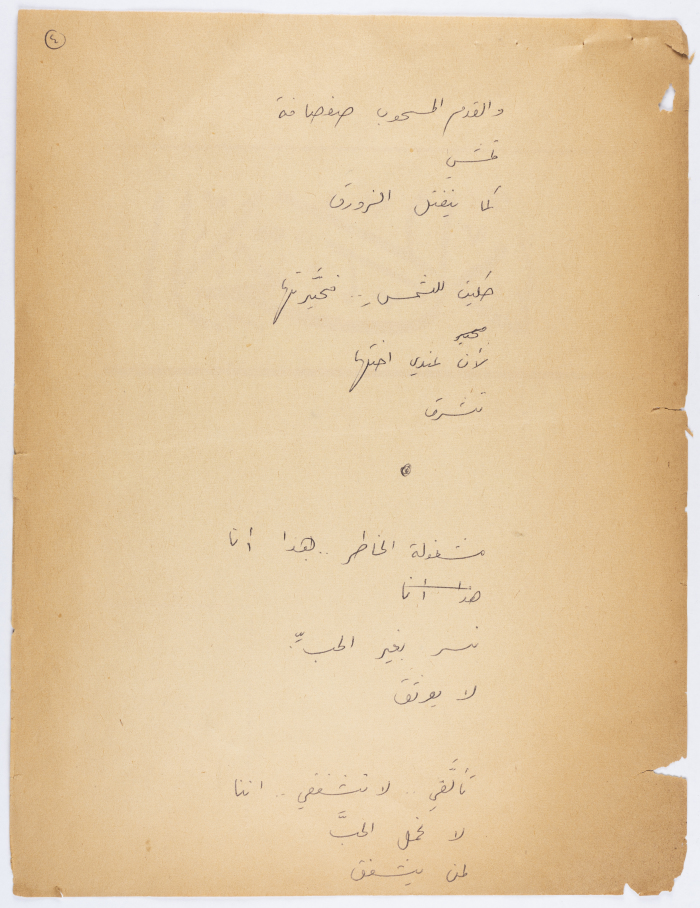 ٤
والقدم المسحوب صفصافة
تمشي
كما ينفتل الزورق
للشمس .. فخيَّرتها
محبير
لأن عندي اختها
تشرق
مشغولة الخاطر .. هذا أنا
هذا أنا
نسر بغير الحبِّ
لا يوثق
تألَّقي .. لا تشفقي .. اننا
لا نحمل الحبَّ
لمن يشفق